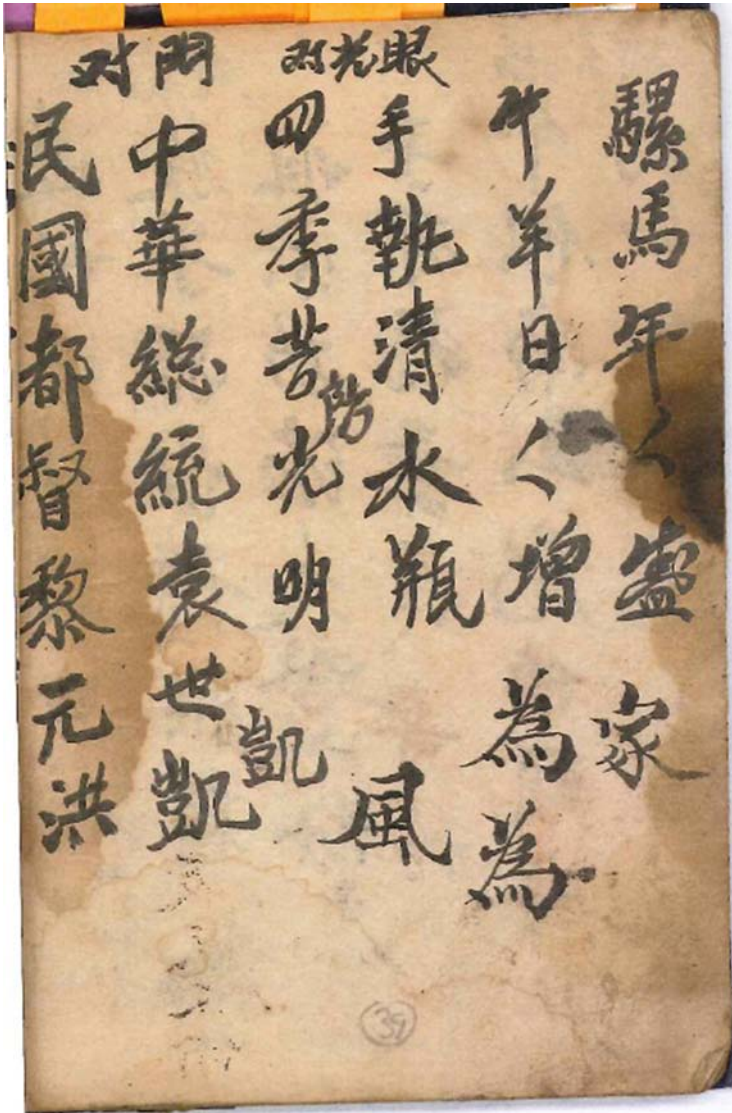 騾馬年〱盛 家
牛羊日〱增 為為
眼光对
手執清水瓶 風
四季菩光明 凱
門对
中華総統袁世凱
民國都督黎元洪
39